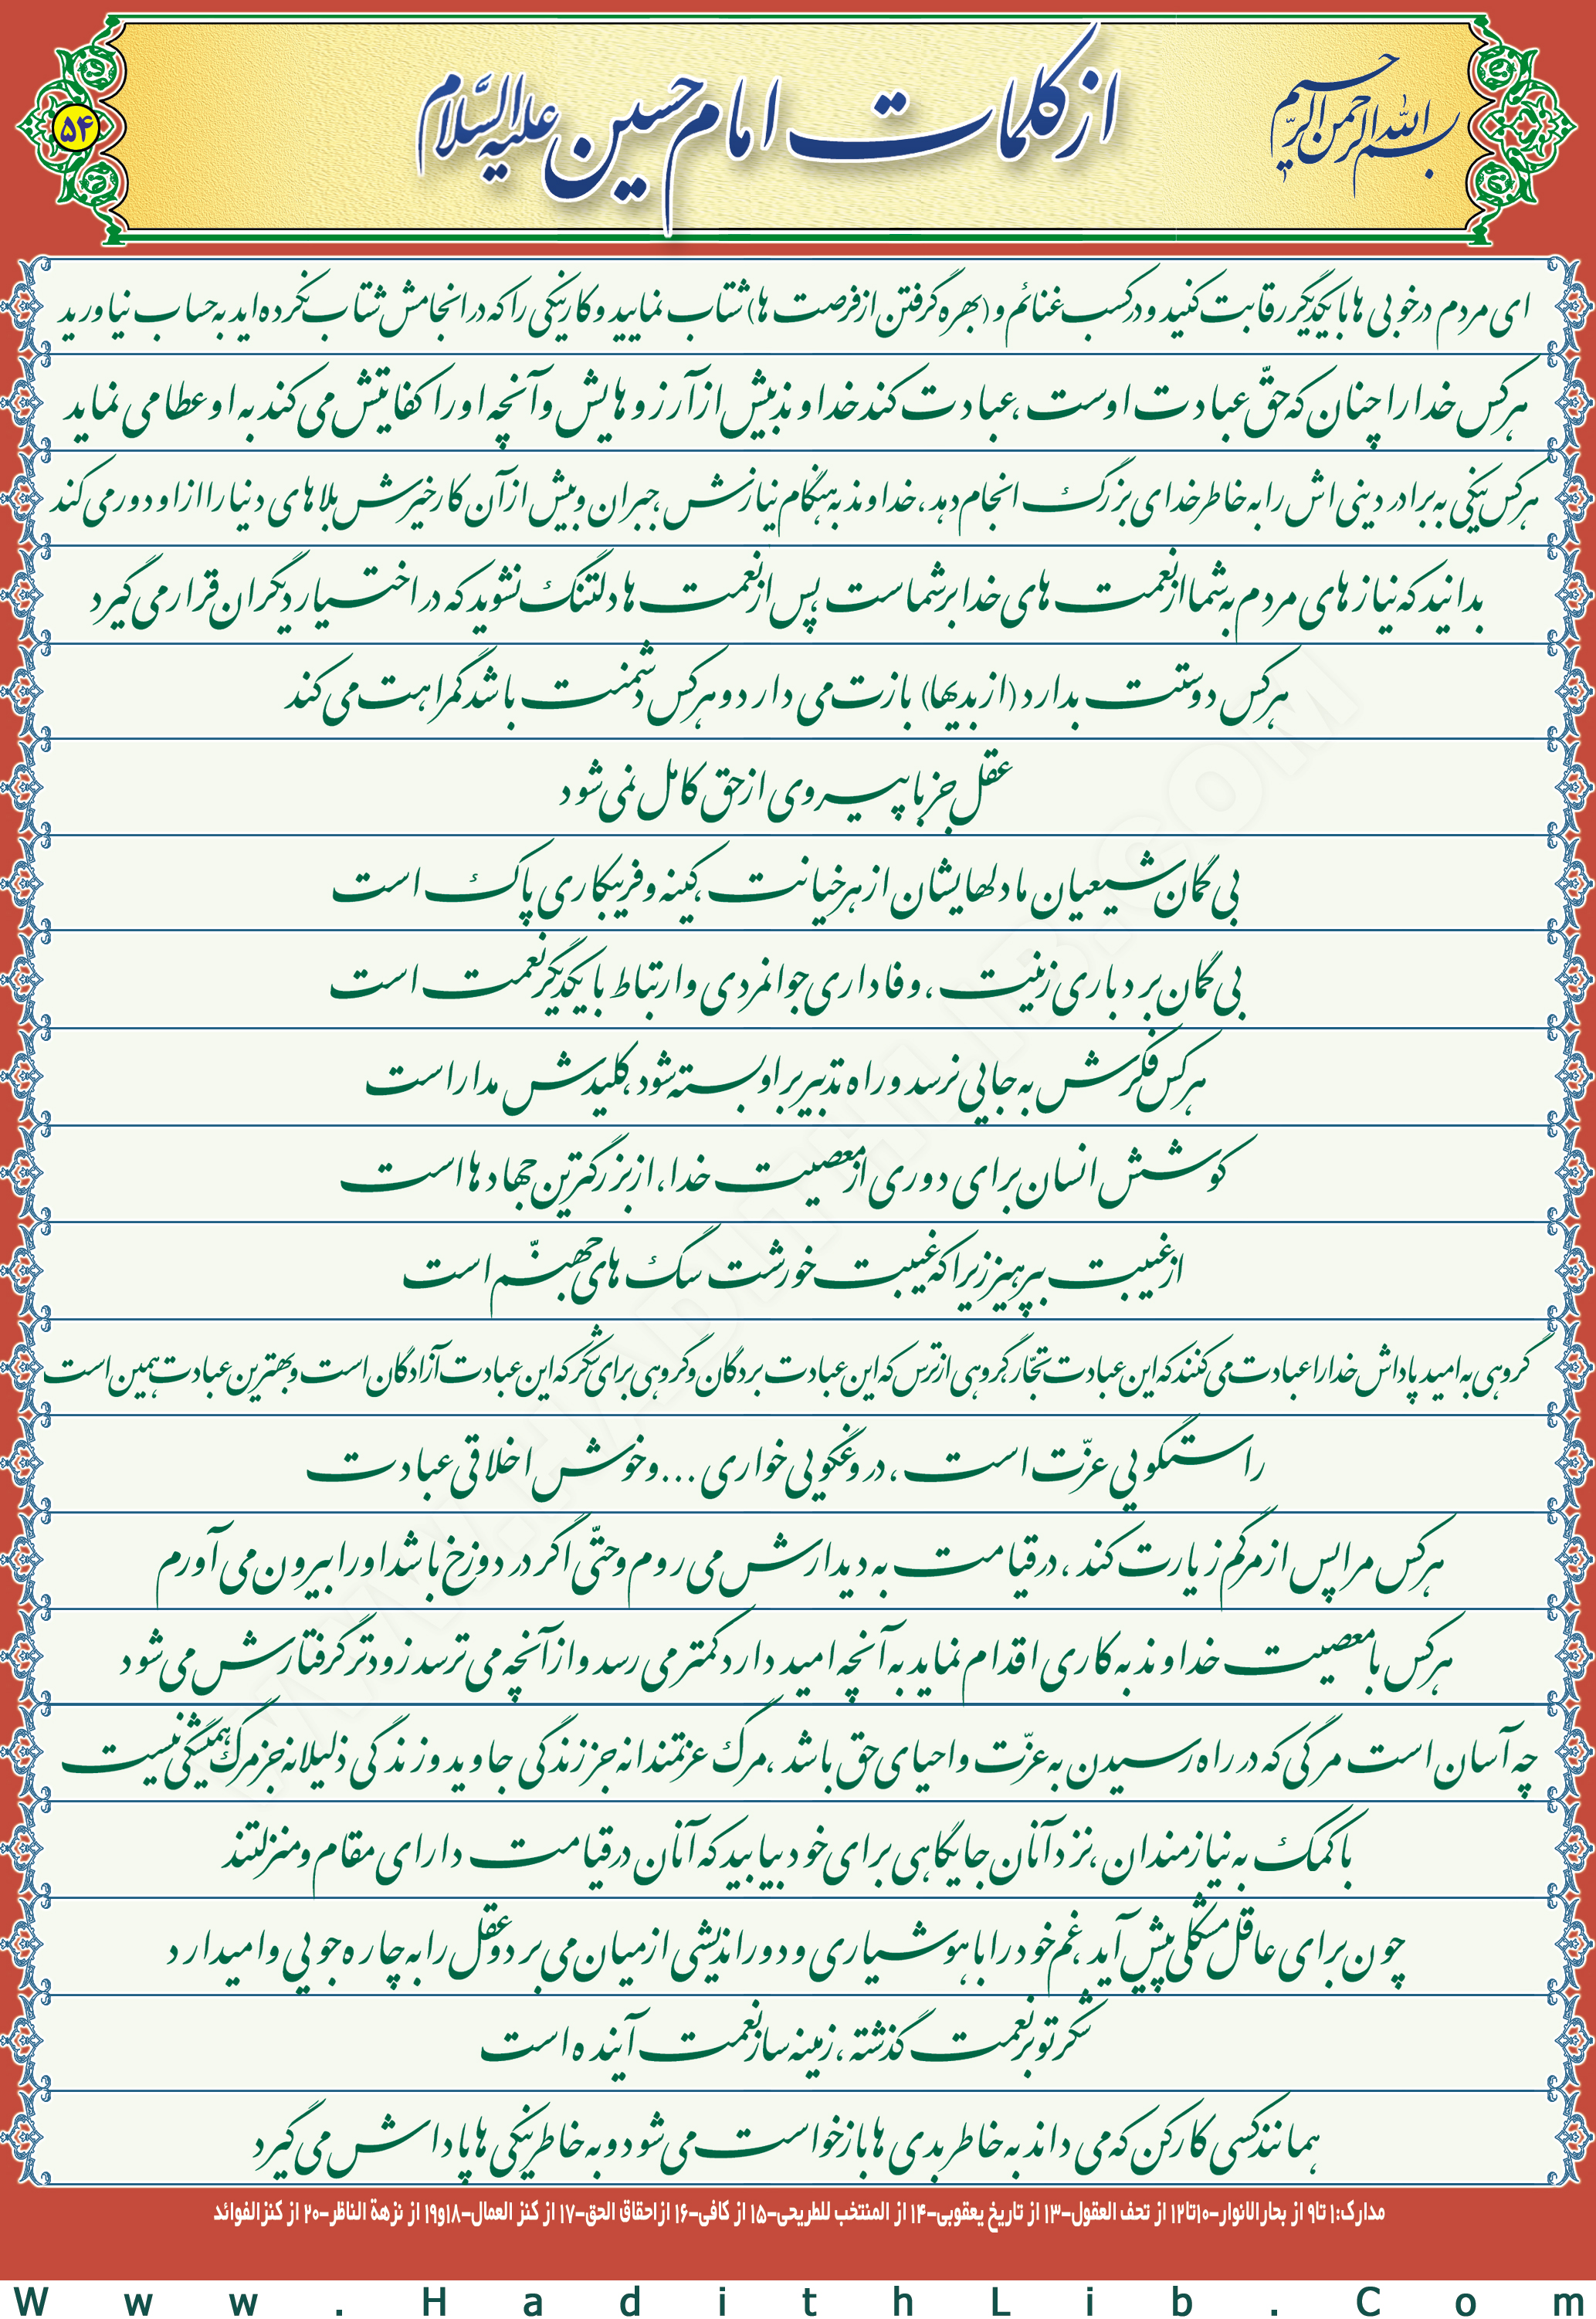 بسم الله الرحمن الرحیم
از کلمات امام حسین علیه السّلام
۵۴
ای مردم در خوبی ها با یکدیگر رقابت کنید و در کسب غنائم و (بهره گرفتن از فرصت ها) شتاب نمایید و کار نیکی را که در انجامش شتاب نکرده اید به حساب نیاورید
هرکس خدا را چنان که حقّ عبادت اوست ، عبادت کند خداوند بیش از آرزوهایش و آنچه او را کفایتش می کند به او عطا می نماید
هرکس نیکی به برادر دینی اش را به خاطر خدای بزرگ انجام دهد ، خداوند به هنگام نیازش ، جبران و بیش از آن کار خیرش بلاهای دنیا را از او دور می کند
بدانید که نیازهای مردم به شما از نعمت های خدا بر شماست پس از نعمت ها دلتنگ نشوید که در اختیار دیگران قرار می گیرد
هرکس دوستت بدارد (از بدیها) بازت می دارد و هرکس دشمنت باشد گمراهت می کند
عقل جز با پیروی از حق کامل نمی شود
بی گمان شیعیان ما دلهایشان از هر خیانت ، کینه و فریبکاری پاک است
بی گمان بردباری زینت ، وفاداری جوانمردی و ارتباط با یکدیگر نعمت است
هرکس فکرش به جایی نرسد و راه تدبیر بر او بسته شود ، کلیدش مداراست
کوشش انسان برای دوری از معصیت خدا ، از بزرگترین جهادها است
از غیبت بپرهیز زیرا که غیبت خورشت سگ های جهنّم است
گروهی به امید پاداش خدا را عبادت می کنند که این عبادت تجّار ، گروهی از ترس که این عبادت بردگان و گروهی برای شکر که این عبادت آزادگان است و بهترین عبادت همین است
راستگویی عزّت است ، دروغگویی خواری ... و خوش اخلاقی عبادت
هرکس مرا پس از مرگم زیارت کند ، در قیامت به دیدارش می روم و حتّی اگر در دوزخ باشد او را بیرون می آورم
هرکس با معصیت خداوند به کاری اقدام نماید به آنچه امید دارد کمتر می رسد و از آنچه می ترسد زودتر گرفتارش می شود
چه آسان است مرگی که در راه رسیدن به عزّت و احیای حق باشد ، مرگ عزتمندانه جز زندگی جاوید و زندگی ذلیلانه جز مرگ همیشگی نیست
با کمک به نیازمندان ، نزد آنان جایگاهی برای خود بیابید که آنان در قیامت دارای مقام و منزلتند
چون برای عاقل مشکلی پیش آید ، غم خود را با هوشیاری و دوراندیشی از میان می برد و عقل را به چاره جویی وامیدارد
شکر تو بر نعمت گذشته ، زمینه ساز نعمت آینده است
همانند کسی کار کن که می داند به خاطر بدی ها بازخواست می شود و به خاطر نیکی ها پاداش می گیرد
مدارک:۱ تا۹ از بحارالانوار-۱۰تا۱۲ از تحف العقول-۱۳ از تاریخ یعقوبی-۱۴ از المنتخب للطریحی-۱۵ از کافی-۱۶ ازاحقاق الحق-۱۷ از کنز العمال-۱۸و۱۹ از نزهة الناظر-۲۰ از کنزالفوائد
Www.HadithLib.Com